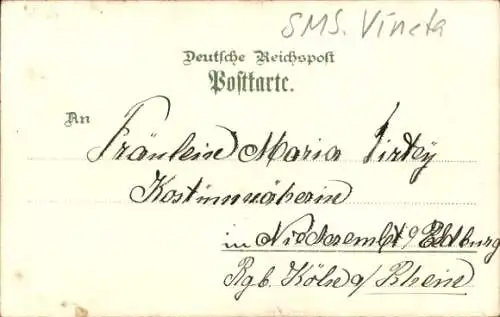 SMS. Vineta
Deutsche Reichspost
Postkarte.
An
Fräulein Maria
Kostümnäherin
in
Rgb. Köln a/Rhein